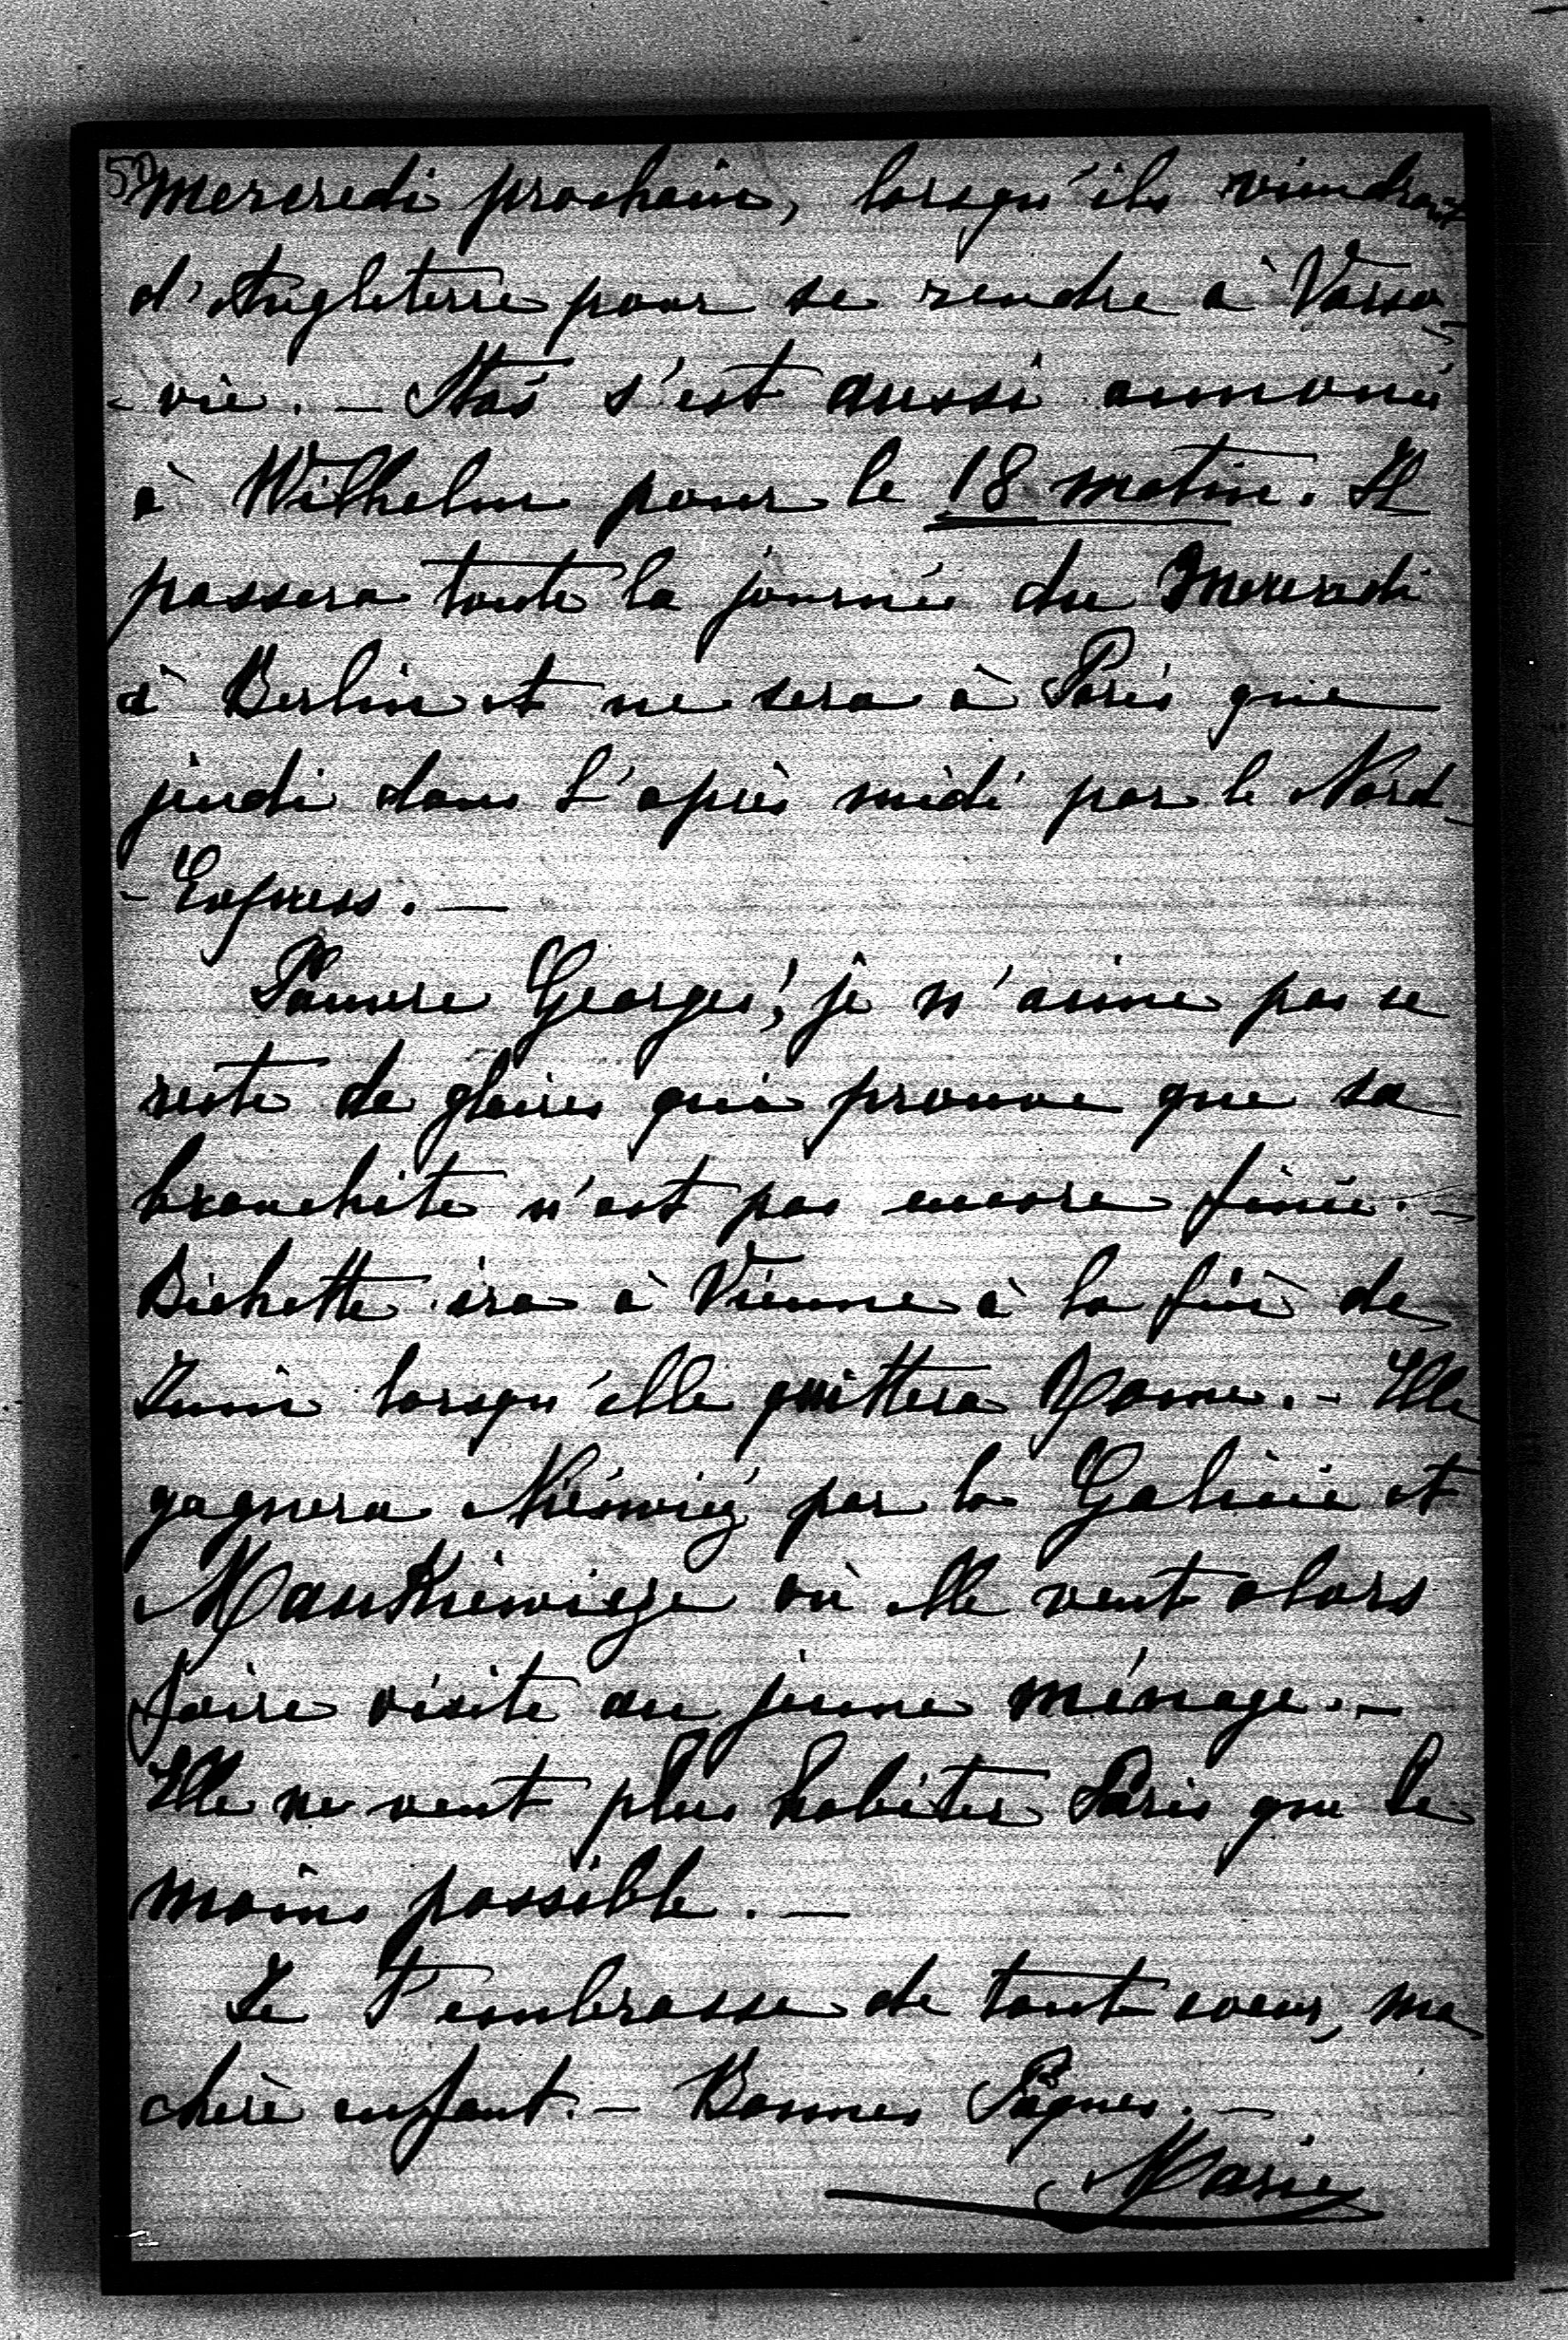 50
Mercredi prochain, lorsqu'ils viendront
d'Angleterre pour se rendre à Varso-
-vie. — Staś s'est aussi annoncé
à Wilhelm pour le 18 matin. Il
passera toute la journée du Mercredi
à Berlin et ne sera à Paris que
jeudi dans l'après midi par le Nord-
-Express. —
Pauvre Georges! je n'aime pas ce
reste de glaires qui prouve que sa
bronchite n'est pas encore finie. —
Bichette ira à Vienne à la fin de
Juin lorsqu'elle quittera Rome. — Elle
gagnera Nieśwież par la Galicie et
Mankiewicze où elle veut alors
faire visite au jeune ménage. —
Elle ne veut plus habiter Paris que le
moins possible. —
Je t'embrasse de tout coeur, ma
chère enfant. — Bonnes Pâques. —
Marie